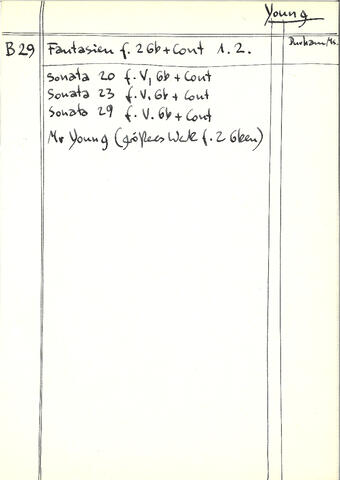 Young
B29 Fantasien f. 2 Gb + Cont 1. 2. Durham/Ms.
Sonata 20 f. V, Gb + Cont
Sonata 23 f. V. Gb + Cont
Sonata 29 f. V. Gb + Cont
Mr Young (größeres Werk f. 2 Gben)